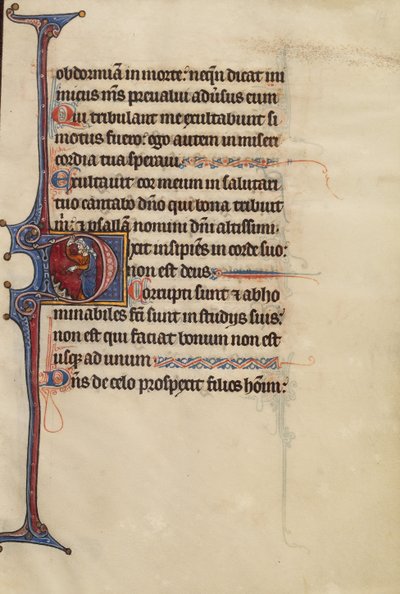 obdormiā in morte: neqn̄ dicat ini
micus m̄s preualui aduʼsus eum
Qui tribulant me exultabunt si
motus fuero: ego autem in miseri
cordia tua speraui.
Exultauit cor meum in salutari
tuo cantabo dn̄o qui bona tribuit
m̄: ⁊ psallā nomini dn̄i altissimi.
Dixit insipiēs in corde suo:
non est deus.
Corrupti sunt ⁊ abho
minabiles fc̄i sunt in studijs suis:
non est qui faciat bonum non est
usqʒ ad unum.
Dn̄s de celo prospexit filios hōim: